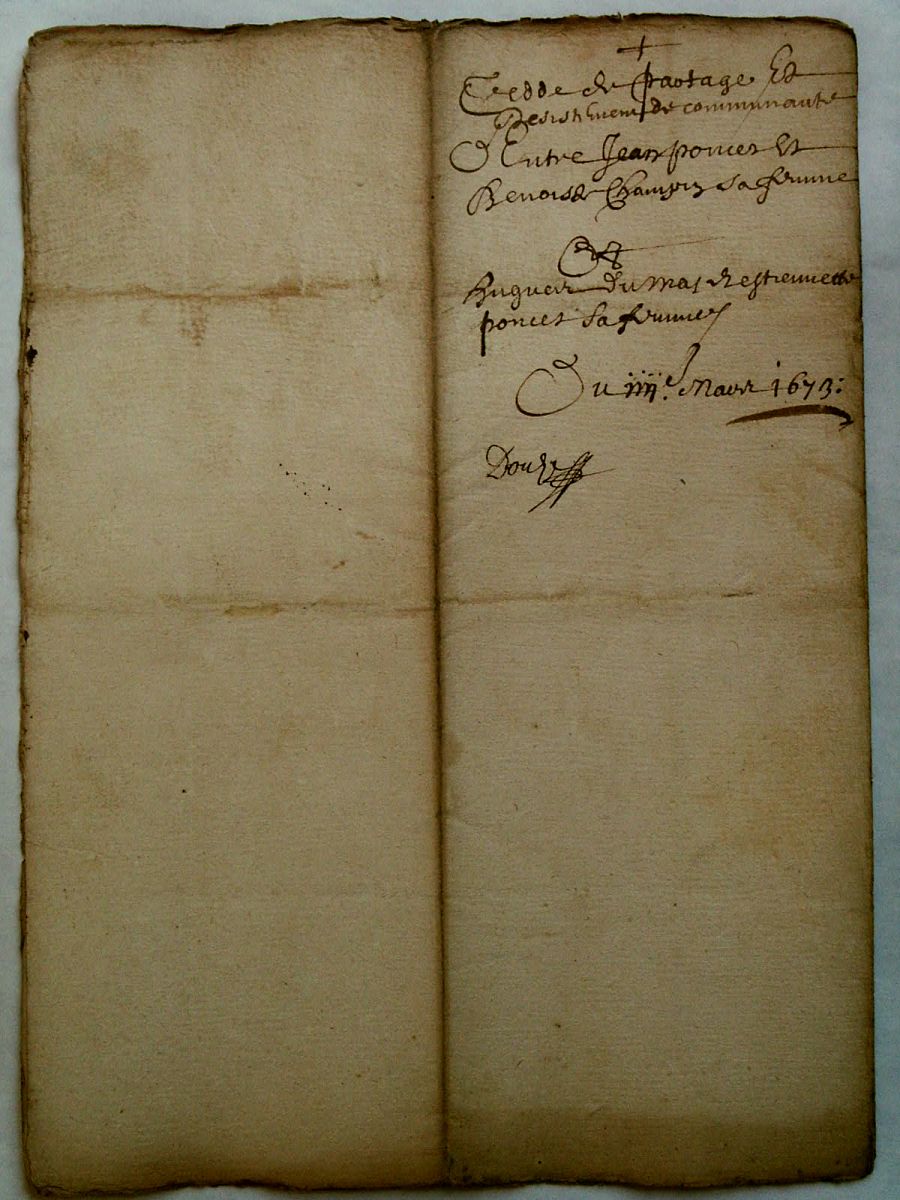 Cedde de partage Et
Desistement de communaute
Entre Jean poncet Et
Benoiste Champin sa femme
Et
Hugues dumas Et estiennette
poncet sa femme
Du iiiie. Mars 1673: